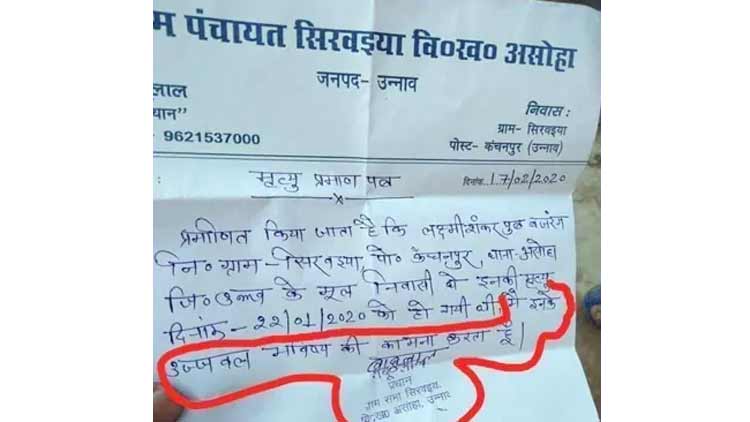 म पंचायत सिरवइया वि०ख० असोहा
जनपद- उन्नाव
लाल
धान”
9621537000
निवास :
ग्राम- सिरवइया
पोस्ट- कंचनपुर (उन्नाव)
मृत्यु प्रमाण पत्र
दिनांक 17/02/2020
प्रमाणित किया जाता है कि लक्ष्मीशंकर पुत्र बजरंग
नि० ग्राम-सिरवइया, पो० कंचनपुर, थाना-असोहा
जि० उन्नाव के मूल निवासी थे इनकी मृत्यु
दिनांक- 22/01/2020 को हो गयी थी, मै इनके
उज्जवल भविष्य की कामना करता हूँ।
प्रधान
ग्राम सभा सिरवइया
वि०ख० असोहा, उन्नाव